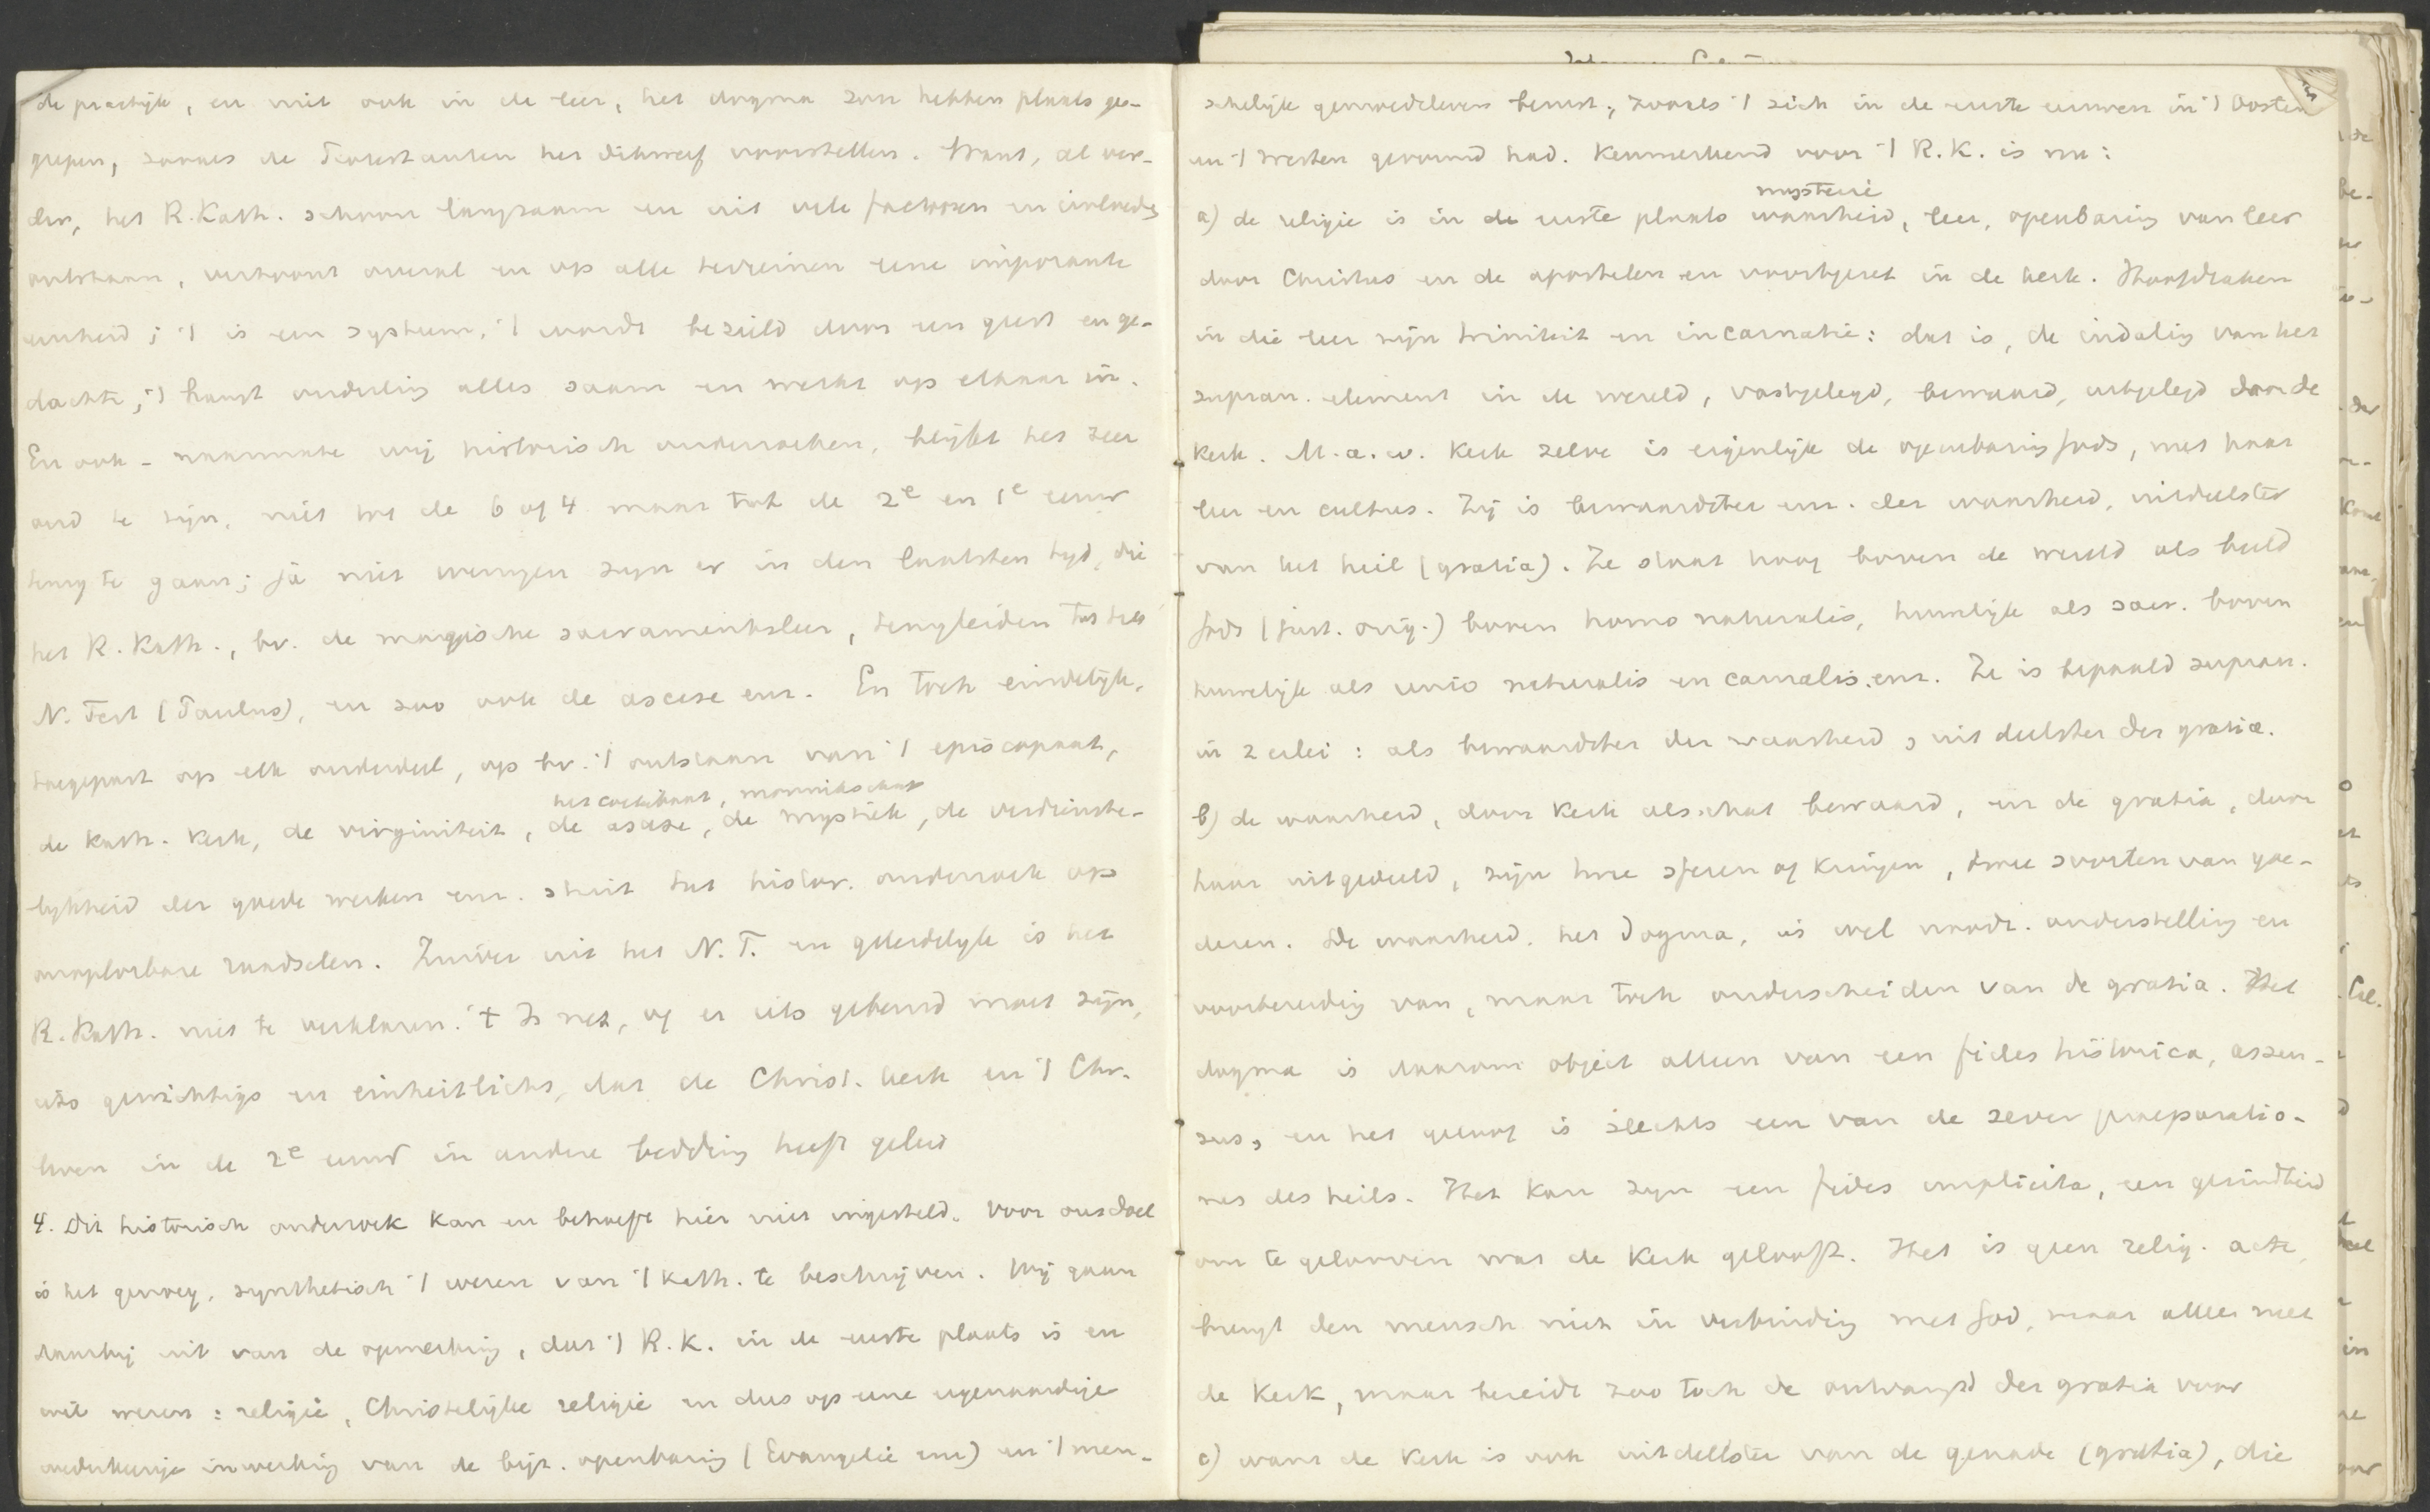 de practijk, en niet ook in de leer, het dogma zou hebben plaats ge-
grepen, zooals de Protestanten het dikwerf voorstellen. Want, al ver-
der, het R. Kath. schoon langzaam en uit vele factoren en invloeden
ontstaan, vertoont overal en op alle terreinen eene imposante
eenheid; 't is een systeem, 't wordt bezield door een geest en ge-
dachte, 't hangt onderling alles saam en werkt op elkaar in.
En ook - naarmate wij historisch onderzoeken, blijkt het zeer
oud te zijn, niet tot de 6 of 4 maar tot de 2e en 1e eeuw
terug te gaan; ja niet weinigen zijn er in den laatsten tijd, die
het R. Kath., bv. de magische sacramentsleer, terugleiden tot het
N. Test (Paulus), en zoo ook de ascese enz. En toch eindelijk,
toegepast op elk onderdeel, op bv. 't ontstaan van 't episcopaat,
het coelibaat, monnikschap
de kath. kerk, de virginiteit, de ascese, de mystiek, de verdienste-
lijkheid der goede werken enz. stuit het histor. onderzoek op
onoplosbare raadselen. Zuiver uit het N.T. en geleidelijk is het
R. Kath. niet te verklaren. 't Is net, of er iets gebeurd moet zijn,
iets gewichtigs en einheitlichs, dat de Christ. kerk en 't Chr.
leven in de 2e eeuw in andere bedding heeft geleid
4. Dit historisch onderzoek kan en behoeft hier niet ingesteld. Voor ons doel
is het genoeg, synthetisch 't wezen van 't kath. te beschrijven. Wij gaan
daarbij uit van de opmerking, dat 't R.K. in de eerste plaats is en
wil wezen: religie, Christelijke religie en dus op eene eigenaardige
wederkeerige inwerking van de bijz. openbaring (Evangelie enz) en 't men-
schelijk gemoedsleven berust, zooals 't zich in de eerste eeuwen in 't Oosten
en 't Westen gevormd had. Kenmerkend voor 't R.K. is nu:
mysterie
a) de religie is in de eerste plaats waarheid, leer, openbaring van leer
door Christus en de apostelen en voortgezet in de kerk. Hoofdzaken
in die leer zijn triniteit en incarnatie: dat is, de indaling van het
supran. element in de wereld, vastgelegd, bewaard, uitgelegd door de
kerk. M.a.w. kerk zelve is eigenlijk de openbaring Gods, met haar
leer en cultus. Zij is bewaardster enz. der waarheid, uitdeelster
van het heil (gratia). Ze staat hoog boven de wereld als beeld
Gods (just. orig.) boven homo naturalis, huwelijk als sacr. boven
huwelijk als unio naturalis en carnalis. enz. Ze is bepaald supran.
in 2erlei: als bewaardster der waarheid, uitdeelster der gratia.
b) de waarheid, door kerk als schat bewaard, en de gratia, door
haar uitgedeeld, zijn twee sferen of kringen, twee soorten van goe-
deren. De waarheid, het dogma, is wel noodz. onderstelling en
voorbereiding van, maar toch onderscheiden van de gratia. Het
dogma is daarom object alleen van een fides historica, assen-
sus, en het geloof is slechts een van de zeven praeparatio-
nes des heils. Het kan zijn een fides implicita, een gezindheid
om te gelooven wat de kerk gelooft. Het is geen relig. acte,
brengt den mensch niet in verbinding met God, maar alleen met
de kerk, maar bereidt zoo toch de ontvangst der gratia voor
c) want de kerk is ook uitdeelster van de genade (gratia), die